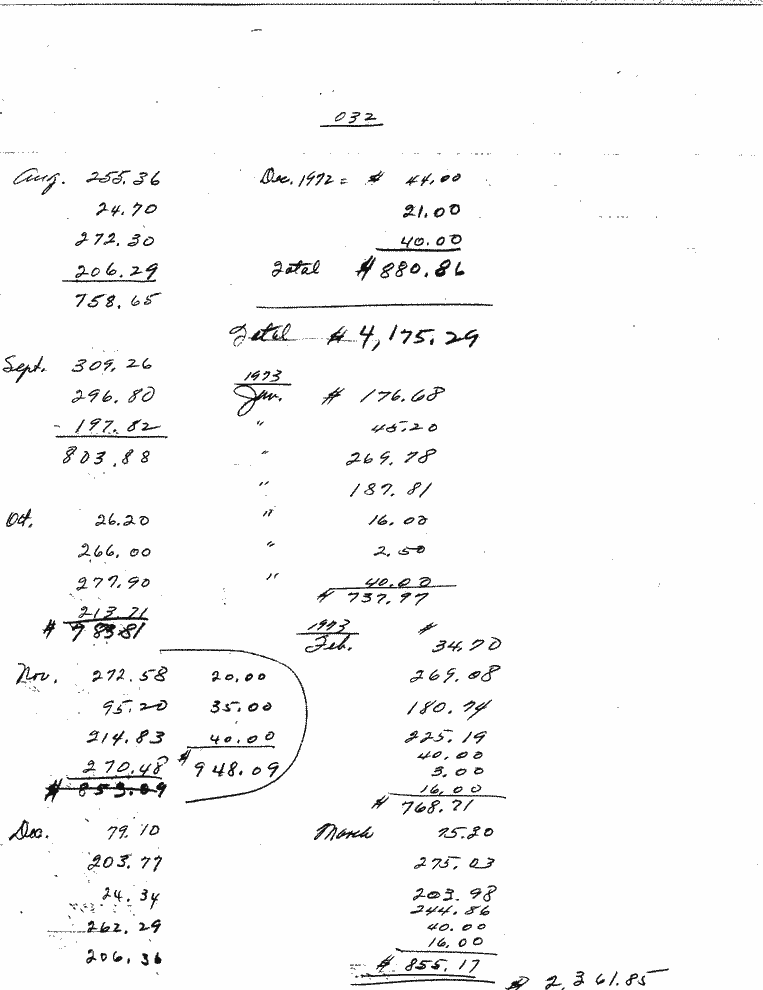 032
Aug. 255.36
24.70
272.30
206.29
758.65
Sept. 309.26
296.80
- 197.82
803.88
Oct. 26.20
266.00
277.90
213.71
$ 783.81
Nov. 272.58
95.20
214.83
270.48
$ 853.09
20.00
35.00
40.00
$ 948.09
Dec. 79.10
203.77
24.34
262.29
206.36
Dec. 1972 = $ 44.00
21.00
40.00
Total $ 880.86
Total $ 4,175.29
1973
Jan. $ 176.68
" 45.20
" 269.78
" 187.81
" 16.00
" 2.50
" 40.00
$ 737.97
1973 $
Feb. 34.70
269.08
180.74
225.19
40.00
3.00
16.00
$ 768.71
March 75.30
275.03
203.98
244.86
40.00
16.00
$ 855.17
$ 2,361.85